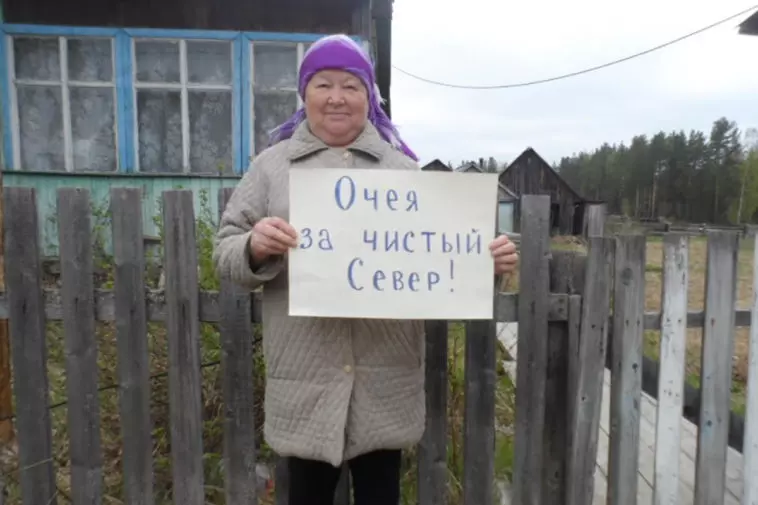 Очея
за чистый
Север!